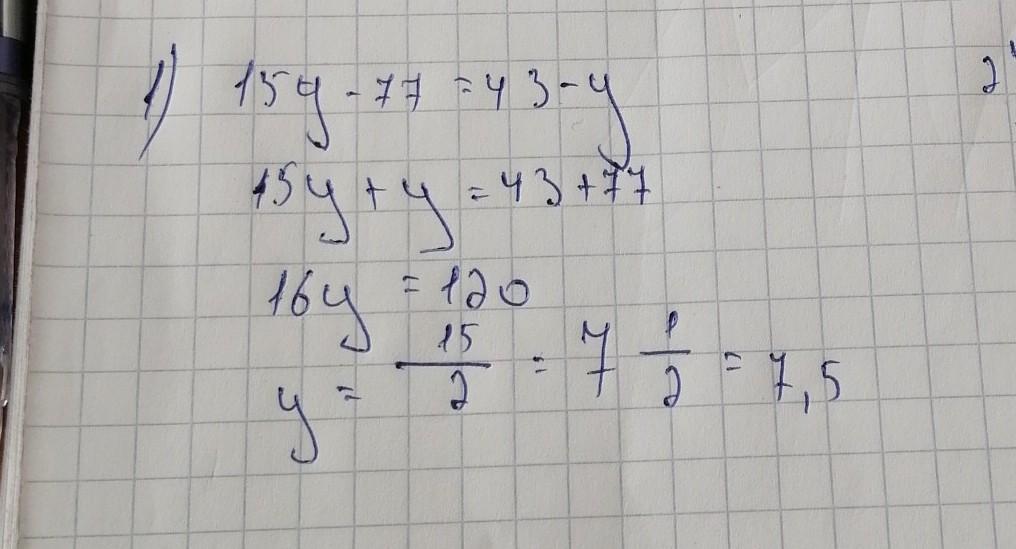 1) 15y - 77 = 43 - y
15y + y = 43 + 77
16y = 120
y = 15/2 = 7 1/2 = 7,5
2